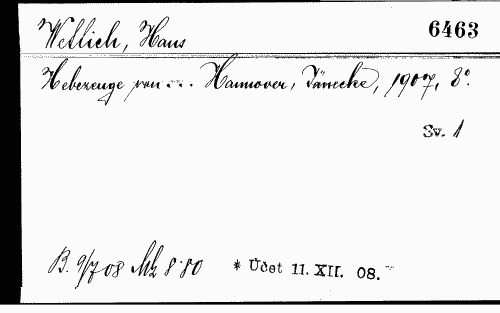 Wettich, Hans 6463
Hebezeuge von ... Hannover, Jänecke, 1907, 8°.
Sv. 1
B. 9/7 08 Mk 8·80 * Účet 11. XII. 08.